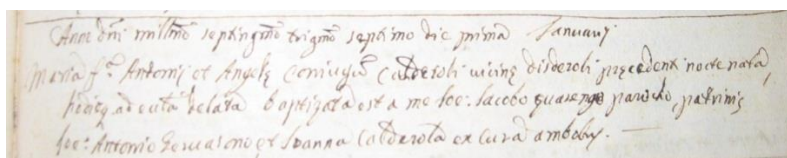 Anno dñi millmo septingmo trigmo septimo die prima Januarij
Maria fa. Antonij et Angelę coniugũ Calderoli vicinę disderoli pręcedenti nocte nata,
delata baptizata est a me Joe: Jacobo quarengo parocho, patrinis
Joe: Antonio Gervasono et Joanna Calderola ex cura ambobus.